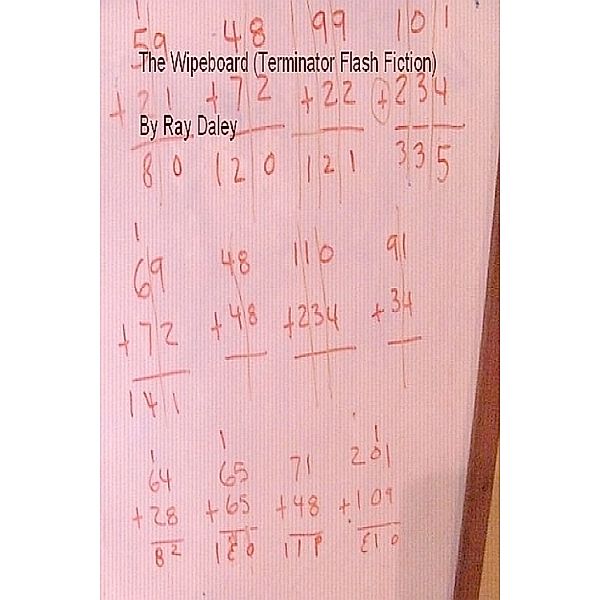 1
59 48 99 101
The Wipeboard (Terminator Flash Fiction)
+21 +72 +22 +234
By Ray Daley
80 120 121 335
1
69 48 110 91
+72 +48 +234 +34
141
1 1 1
64 65 71 201
+28 +65 +48 +109
82 130 119 310